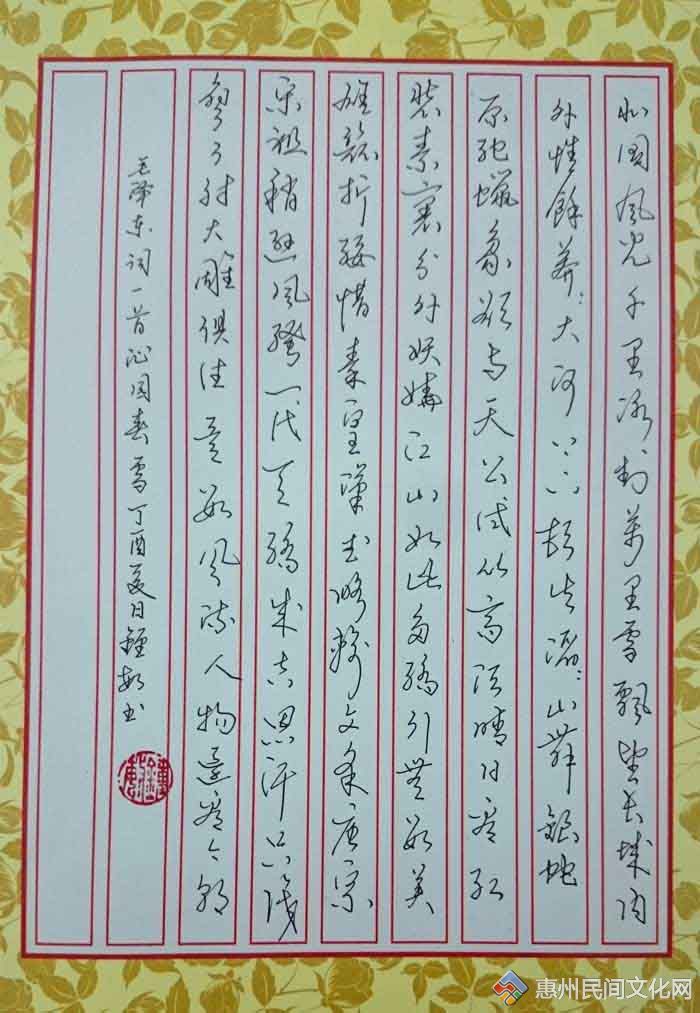 北国风光千里冰封萬里雪飄望长城内
外惟餘莽〻大河上下頓失滔〻山舞銀蛇
原驰蠟象欲与天公试比高须晴日看红
装素裹分外妖嬈江山如此多骄引無数英
雄競折腰惜秦皇漢武略输文采唐宗
宋祖稍逊風骚一代天骄成吉思汗只识
彎弓射大雕俱往矣数风流人物還看今朝
毛泽东词一首沁园春雪丁酉夏日書
惠州民间文化网